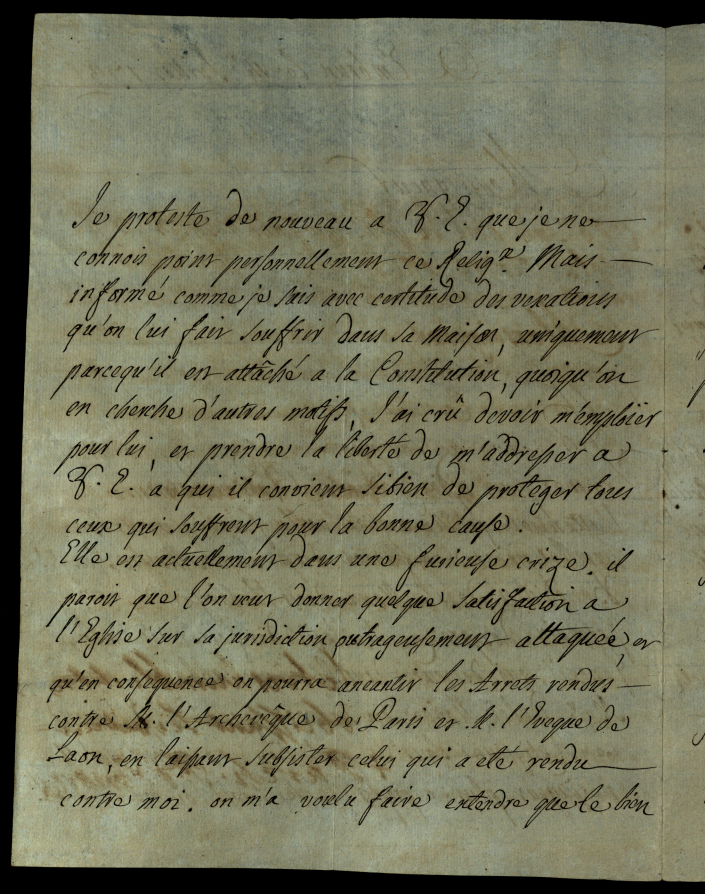 Je proteste de nouveau a V. E. que je ne
connois point personnellement ce Relig.x Mais
informé comme je suis avec certitude des vexations
qu'on lui fait souffrir dans sa Maison, uniquement
parcequ'il est attâché a la Constitution, quoiqu'on
en cherche d'autres motifs, J'ai crû devoir m'emploïer
pour lui, et prendre la liberté de m'addresser a
V. E. a qui il convient sibien de proteger tous
ceux qui souffrent pour la bonne cause.
Elle est actuellement dans une furieuse crize. il
paroit que l'on veut donner quelque satisfaction a
l'Eglise sur sa jurisdiction outrageusement attaquée, et
qu'en consequence on pourra aneantir les Arrets rendus
contre M. l'Archevêque de Paris et M. l'Eveque de
Laon, en laissant subsister celui qui a eté rendu
contre moi. on m'a voulu faire entendre que le bien